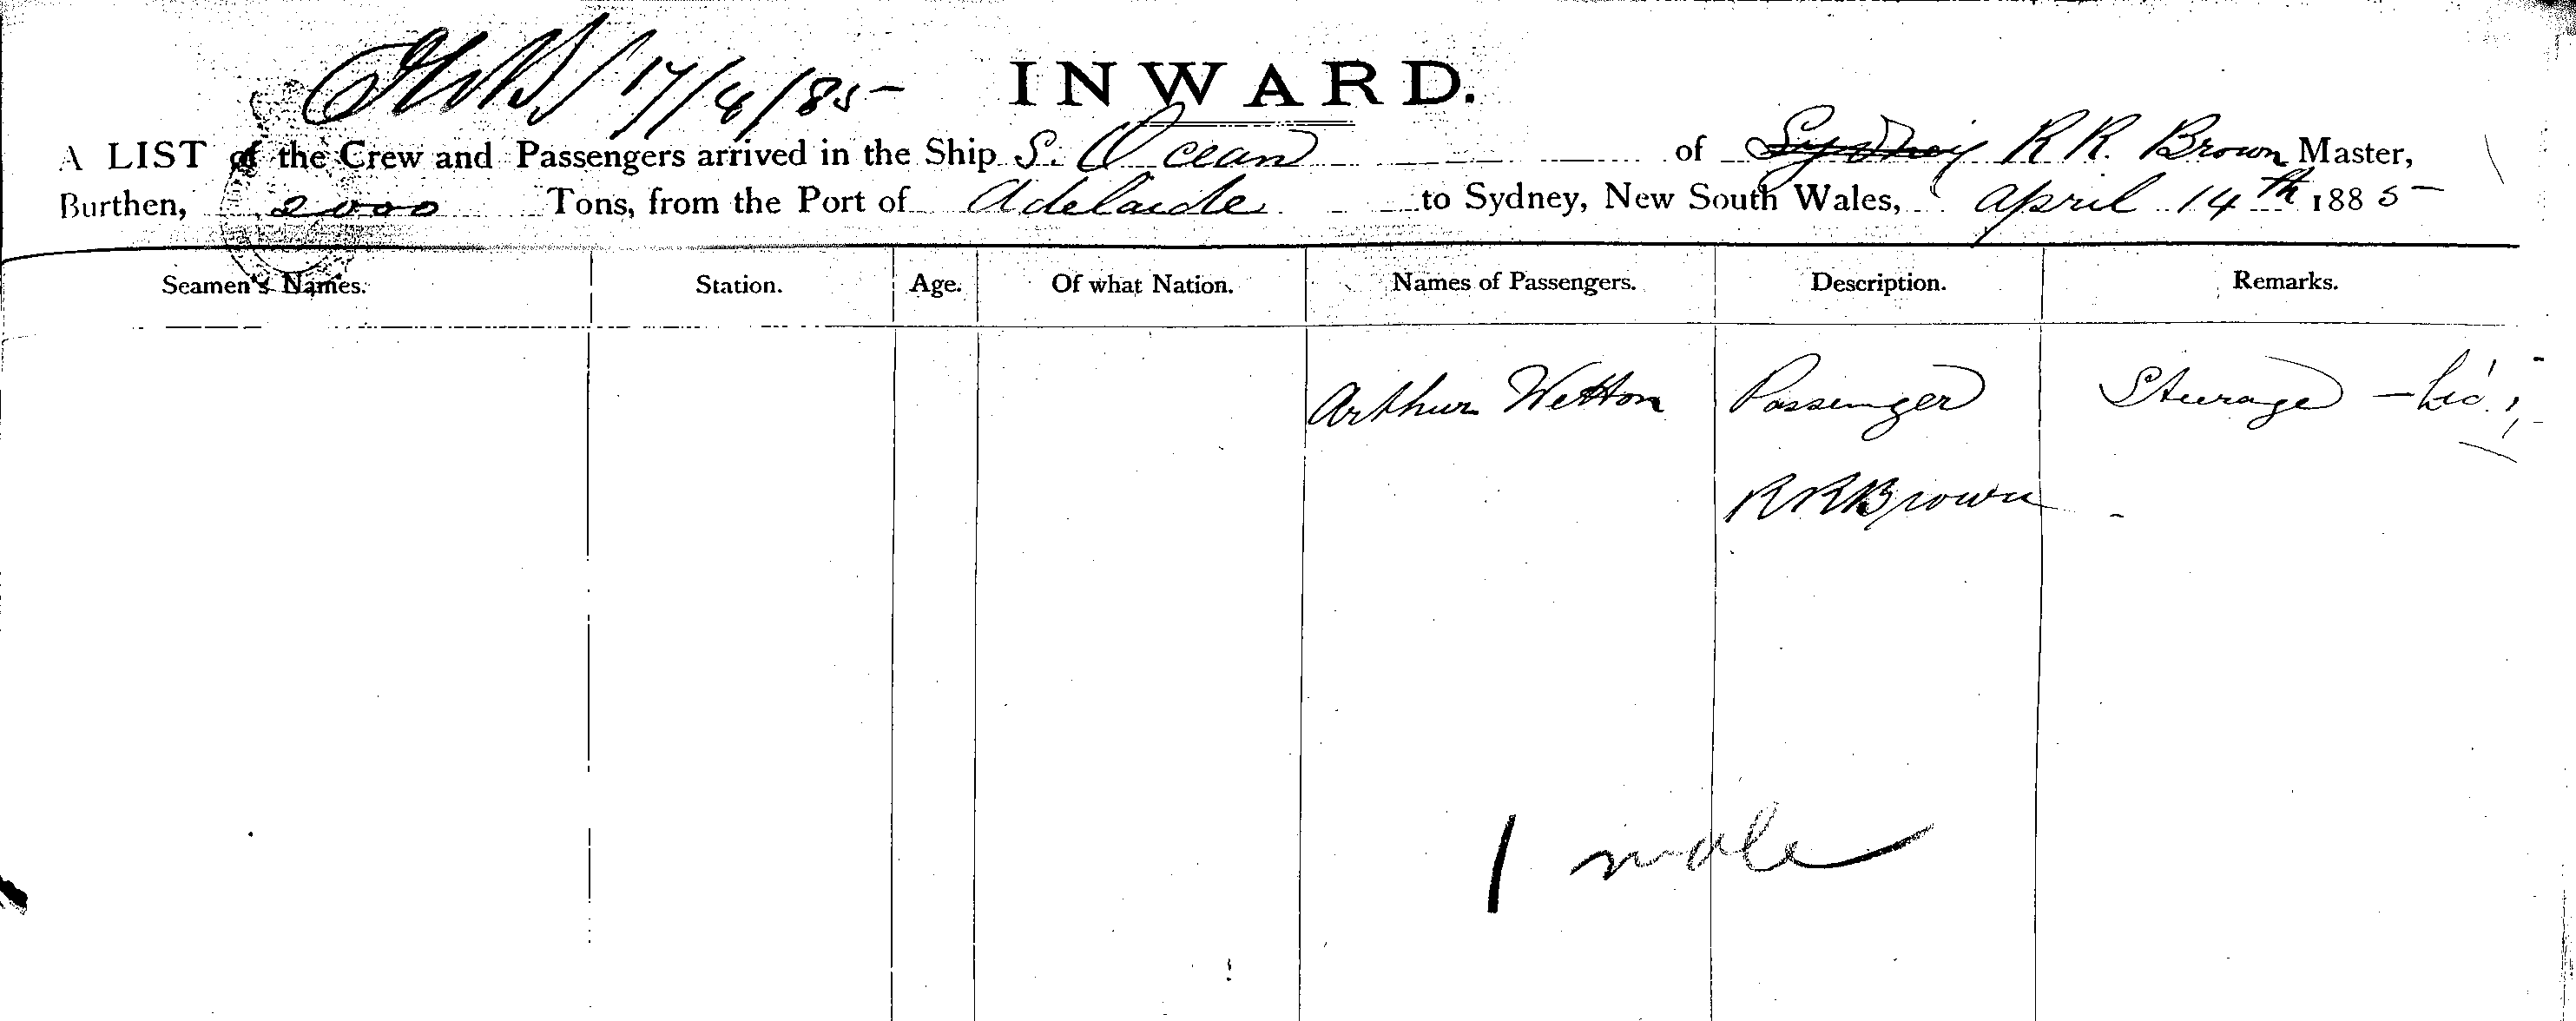 17/4/85
INWARD.
A LIST of the Crew and Passengers arrived in the Ship S. Ocean of Sydney R R. Brown Master,
Burthen, 2000 Tons, from the Port of Adelaide to Sydney, New South Wales, April 14th 1885
Seamen's Names. Station. Age. Of what Nation. Names of Passengers. Description. Remarks.
Arthur Wetton Passenger Steerage
R R Brown
1 male